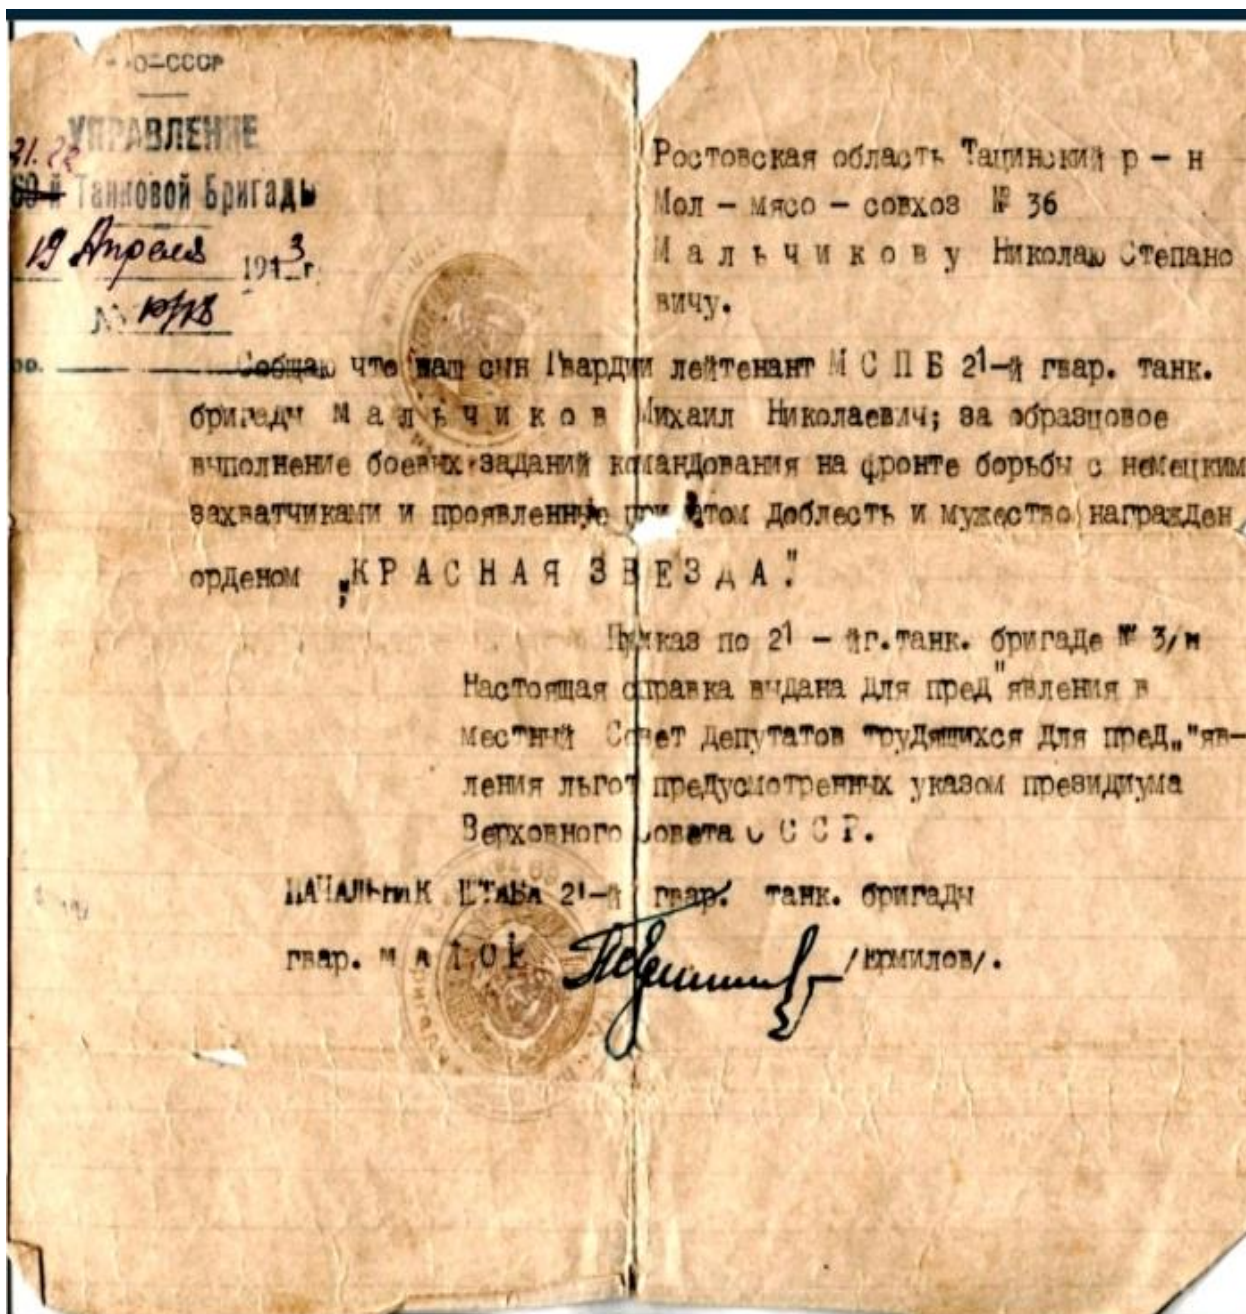 О-СССР
УПРАВЛЕНИЕ
21.
69-й Танковой Бригады
19 Апреля 1943 г.
№
Ростовская область Тацинский р – н
Мол – мясо – совхоз № 36
М а л ь ч и к о в у Николаю Степано
вичу.
Собщаю что ваш сын Гвардии лейтенант М С П Б 21-й гвар. танк.
бригады М а л ь ч и к о в Михаил Николаевич; за образцовое
выполнение боевых заданий командования на фронте борьбы с немецким
захватчиками и проявленные при этом доблесть и мужество награжден
орденом „К Р А С Н А Я З В Е З Д А".
Приказ по 21 – йг.танк. бригаде № 3/н
Настоящая справка выдана для пред"явления в
местный Совет депутатов трудящихся для пред„"яв-
ления льгот предусмотренных указом президиума
Верховного Совета С С С Р.
НАЧАЛЬНИК ШТАБА 21-й гвар. танк. бригады
гвар. м а й о р /Ермилов/.